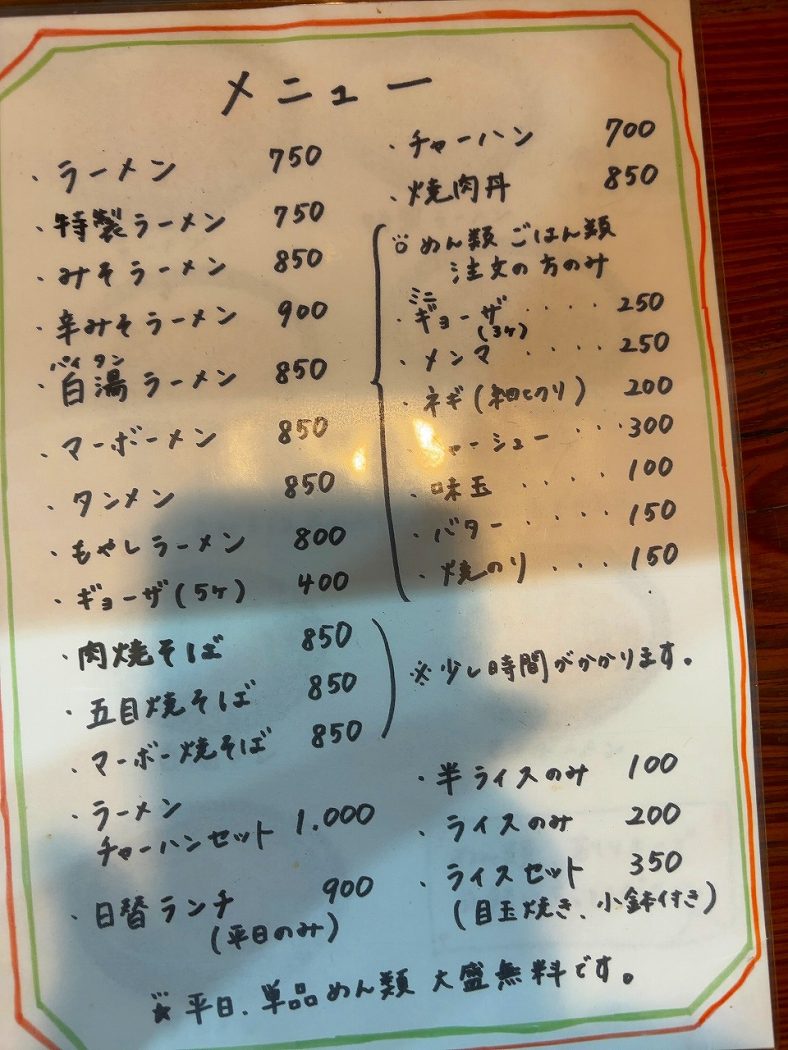 メニュー
・ラーメン 750
・特製ラーメン 750
・みそラーメン 850
・辛みそラーメン 900
パイタン
・白湯ラーメン 850
・マーボーメン 850
・タンメン 850
・もやしラーメン 800
・ギョーザ(5ヶ) 400
・肉焼そば 850
・五目焼そば 850
・マーボー焼そば 850
※少し時間がかかります。
・ラーメン
チャーハンセット 1.000
・日替ランチ 900
(平日のみ)
・チャーハン 700
・焼肉丹 850
めん類 ごはん類
注文の方のみ
ミニ
・ギョーザ ・・・・ 250
(3ヶ)
・メンマ ・・・・ 250
・ネギ(細切り) 200
・チャーシュー ・・・300
・味玉 ・・・・ 100
・バター ・・・・ 150
・焼のり ・・・ 150
・半ライスのみ 100
・ライスのみ 200
・ライスセット 350
(目玉焼き、小鉢付き)
☆平日、単品めん類 大盛無料です。